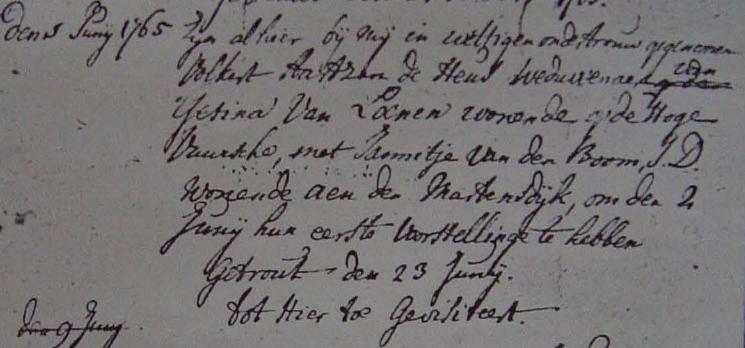 den 1 Junij 1765 Zijn alhier bij mij in wettigen ondertrouw opgenomen
Volkert Aartzen de Heus Weduwenaer van
Gesina Van Loenen wonende op de Hoge
Vuursche, met Jannitje van den Boom, J.D.
wonende aen den Martensdijk, om den 2
Junij hun eerste Voorstellinge te hebben
Getrout den 23 Junij.
tot Hier toe Gevisiteert.
den 9 Junij